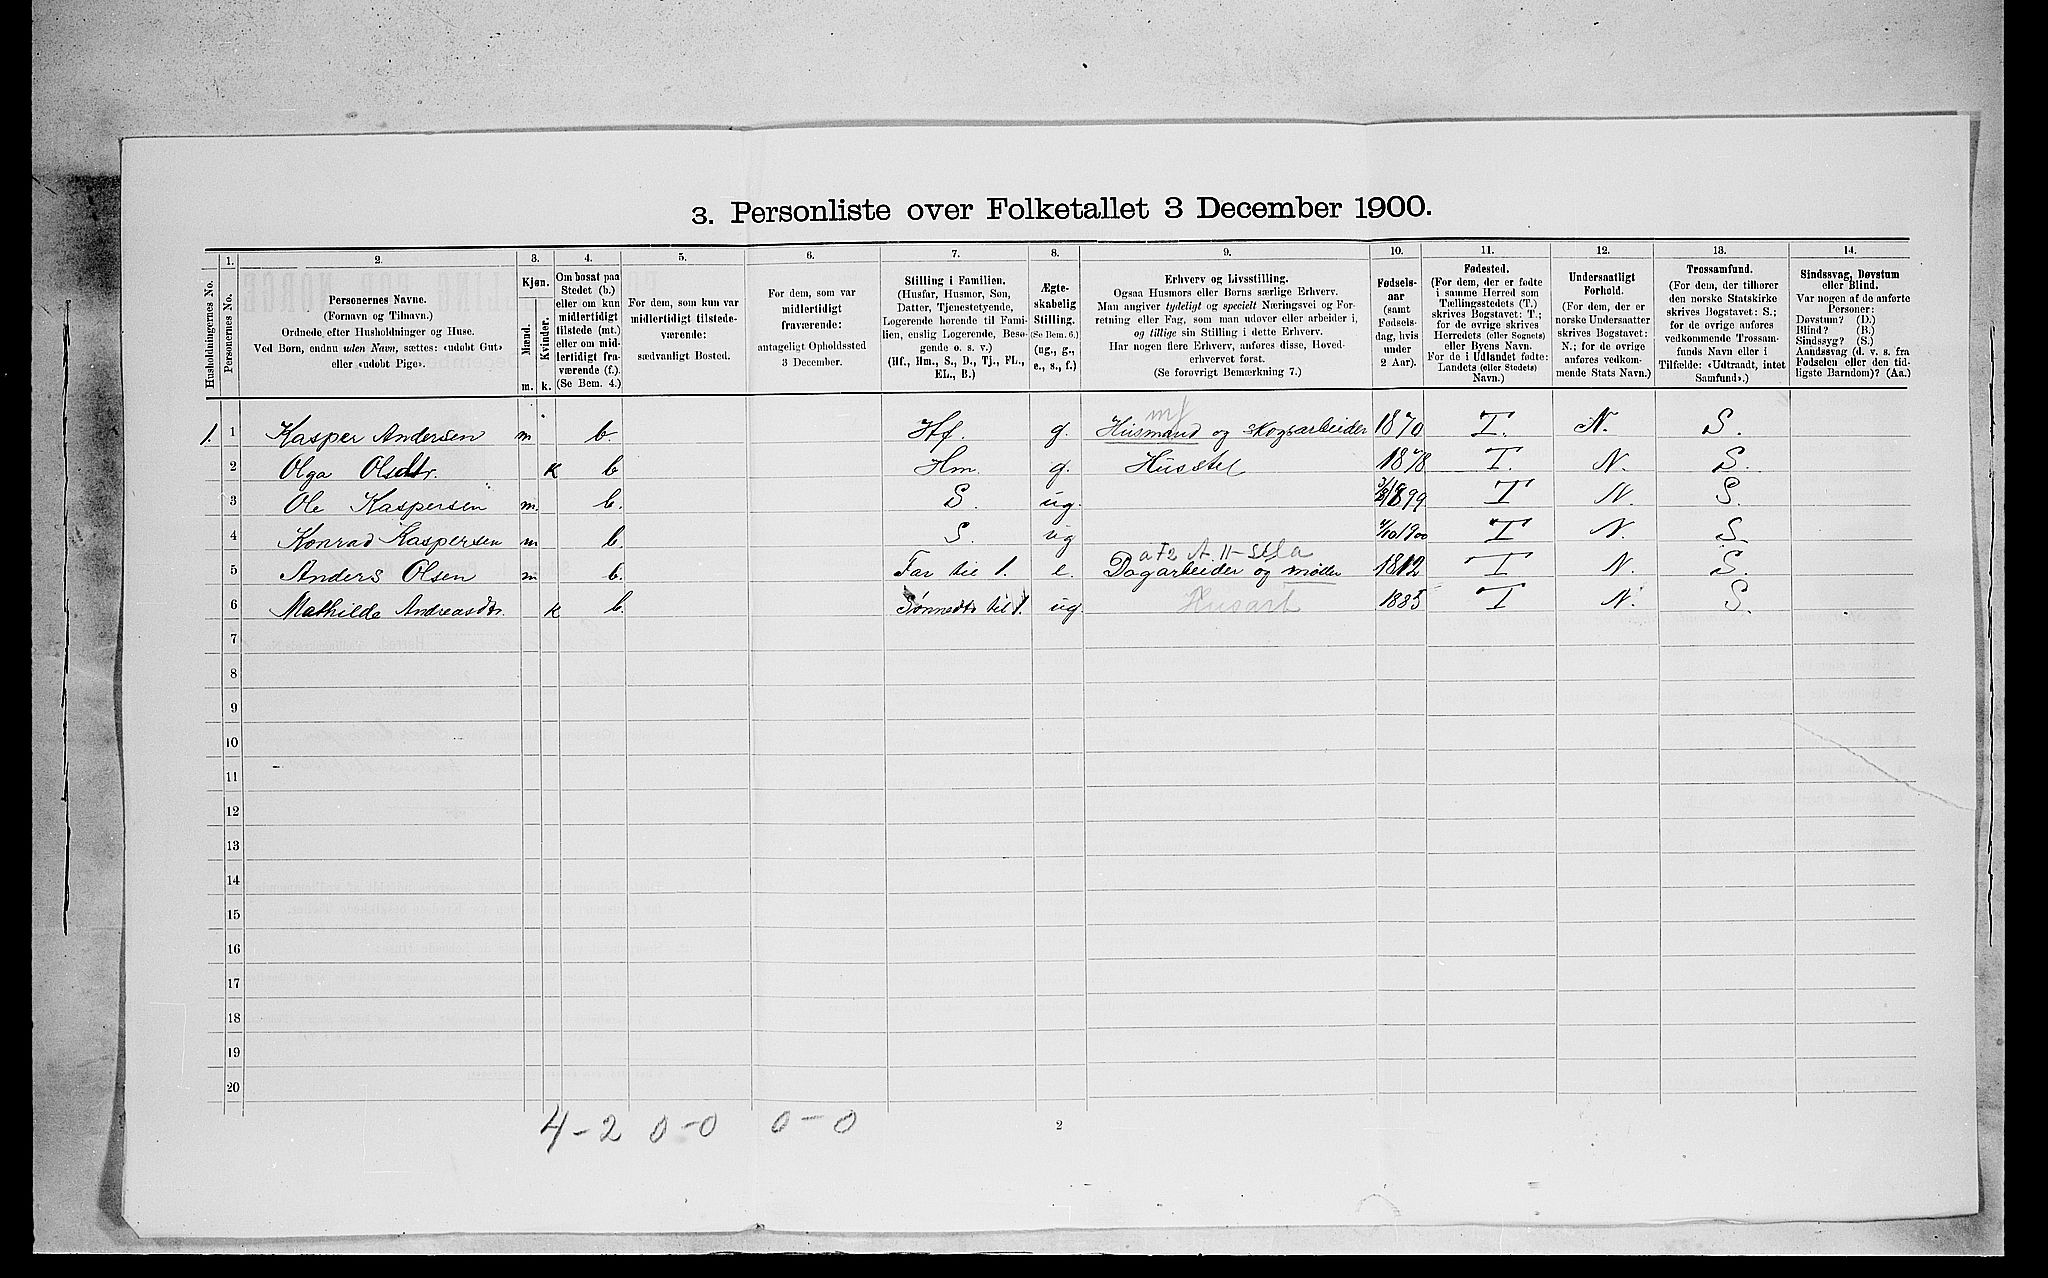 3. Personliste over Folketallet 3 December 1900.
1. 2. 3. 4. 5. 6. 7. 8. 9. 10. 11. 12. 13. 14.
Husholdningernes No.
Personernes No.
Personernes Navne.
(Fornavn og Tilnavn.)
Ordnede efter Husholdninger og Huse.
Ved Børn, endnu uden Navn, sættes: «udøbt Gut»
eller «udøbt Pige».
Kjøn.
Mænd.
Kvinder.
m. k.
Om bosat paa
Stedet (b.)
eller om kun
midlertidigt
tilstede (mt.)
eller om mid-
lertidigt fra-
værende (f.).
(Se Bem. 4.)
For dem, som kun var
midlertidigt tilstede-
værende:
sædvanligt Bosted.
For dem, som var
midlertidigt
fraværende:
antageligt Opholdssted
3 December.
Stilling i Familien.
(Husfar, Husmor, Søn,
Datter, Tjenestetyende,
Logerende hørende til Fami-
lien, enslig Logerende, Besø-
gende o. s. v.)
(Hf., Hm., S., D., Tj., FL.,
EL., B.)
Ægte-
skabelig
Stilling.
(Se Bem. 6.)
(ug., g.,
e., s., f.)
Erhverv og Livsstilling.
Ogsaa Husmors eller Børns særlige Erhverv.
Man angiver tydeligt og specielt Næringsvei og For-
retning eller Fag, som man udøver eller arbeider i,
og tillige sin Stilling i dette Erhverv.
Har nogen flere Erhverv, anføres disse, Hoved-
erhvervet først.
(Se forøvrigt Bemærkning 7.)
Fødsels-
aar
(samt
Fødsels-
dag, hvis
under
2 Aar).
Fødested.
(For dem, der er fødte
i samme Herred som
Tællingsstedets (T.)
skrives Bogstavet: T.;
for de øvrige skrives
Herredets (eller Sognets)
eller Byens Navn.
For de i Udlandet fødte:
Landets (eller Stedets)
Navn.)
Undersaatligt
Forhold.
(For dem, der er
norske Undersaatter
skrives Bogstavet:
N.; for de øvrige
anføres vedkom-
mende Stats Navn.)
Trossamfund.
(For dem, der tilhører
den norske Statskirke
skrives Bogstavet: S.;
for de øvrige anføres
vedkommende Trossam-
funds Navn eller i
Tilfælde: «Udtraadt, intet
Samfund».)
Sindssvag, Døvstum
eller Blind.
Var nogen af de anførte
Personer:
Døvstum? (D.)
Blind? (B.)
Sindssyg? (S.)
Aandssvag (d. v. s. fra
Fødselen eller den tid-
ligste Barndom)? (Aa.)
mf
1. 1 Kasper Andersen m b. Hf. g. Husmand og skogsarbeider 1870 T. N. S.
2 Olga Olsdtr. k b Hm. g. Husstel 1878 T. N. S.
3 Ole Kaspersen m. b. S. ug. 1899 T N. S.
4 Konrad Kaspersen m b. S. ug 1900 T N. S.
5 Anders Olsen m b. Far til 1. e. Dagarbeider og møller 1812 T N. S.
6 Mathilde Andreasdtr. k b. Sønnedtr til 1. ug. Husarb 1885 T N. S.
7
8
9
10
11
12
13
14
15
16
17
18
19
20
4-2 0-0 0-0
2